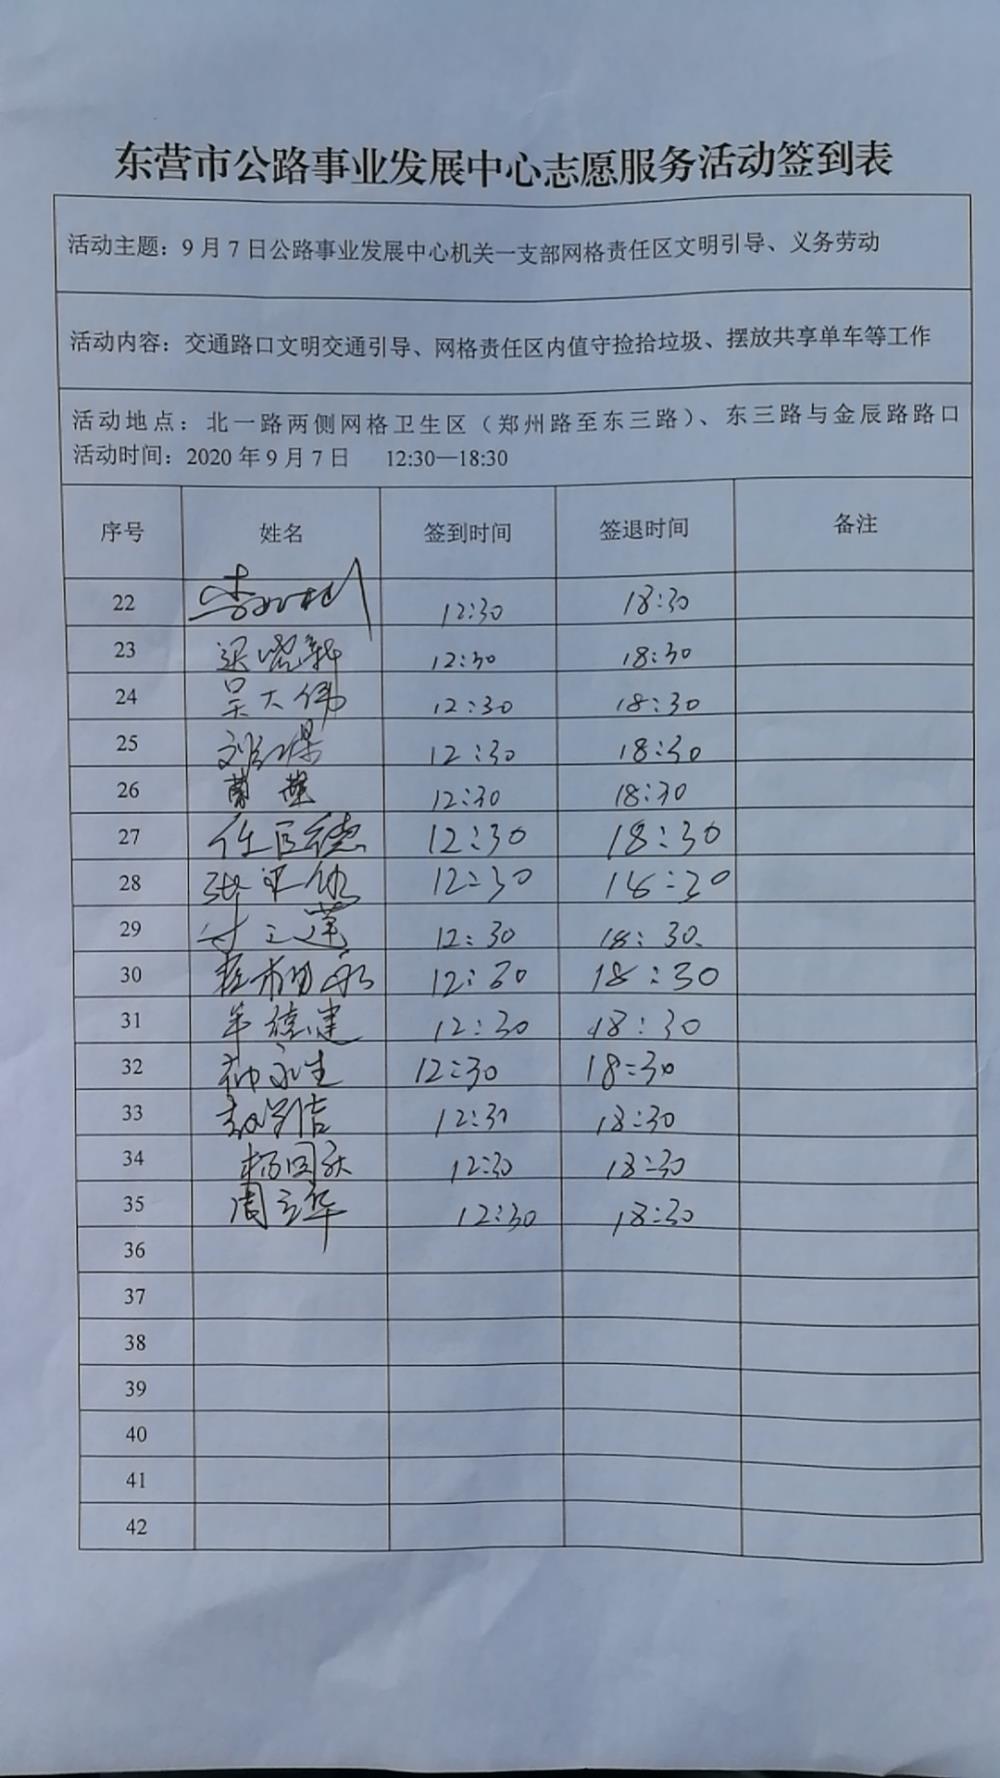 东营市公路事业发展中心志愿服务活动签到表
活动主题：9月7日公路事业发展中心机关一支部网格责任区文明引导、义务劳动
活动内容：交通路口文明交通引导、网格责任区内值守捡拾垃圾、摆放共享单车等工作
活动地点：北一路两侧网格卫生区（郑州路至东三路）、东三路与金辰路路口
活动时间：2020年9月7日 12:30—18:30
序号 姓名 签到时间 签退时间 备注
22 12:30 18:30
23 12:30 18:30
24 吴大伟 12:30 18:30
25 12:30 18:30
26 12:30 18:30
27 任臣德 12:30 18:30
28 12:30 18:30
29 付立莲 12:30 18:30
30 12:30 18:30
31 牟德建 12:30 18:30
32 12:30 18:30
33 12:30 18:30
34 杨国跃 12:30 18:30
35 周立华 12:30 18:30
36
37
38
39
40
41
42